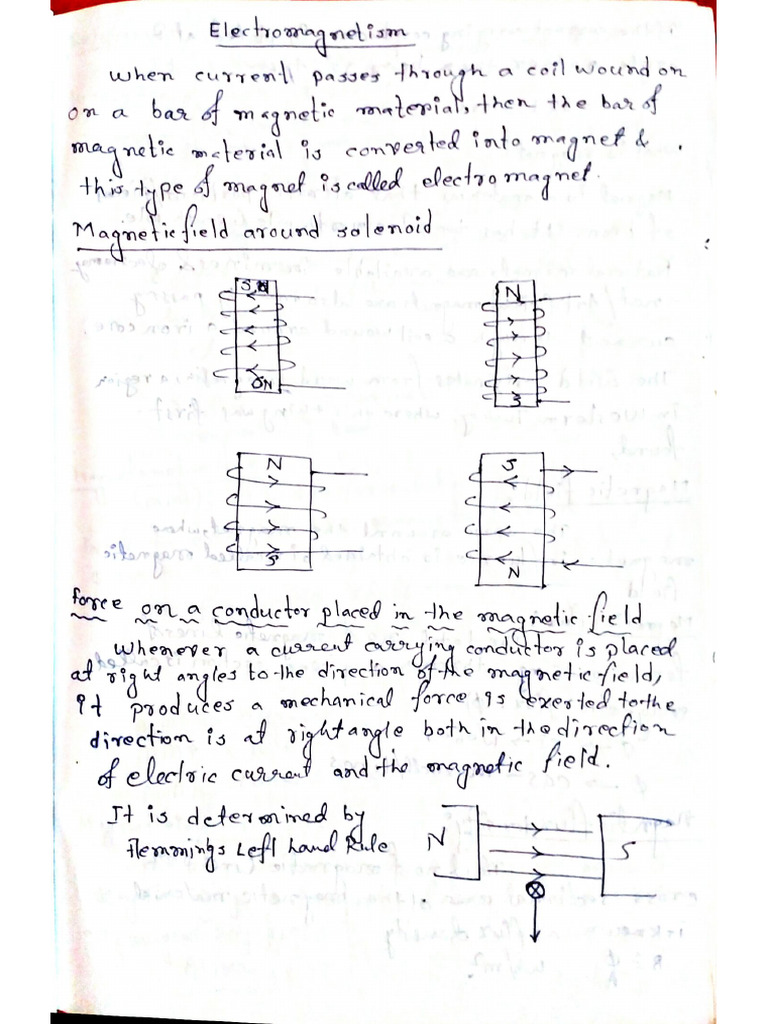 Electromagnetism
when current passes through a coil wound on
on a bar of magnetic material, then the bar of
magnetic material is converted into magnet &
this type of magnet is called electromagnet.
Magnetic field around solenoid
S N
N
N
S
N
S
S
N
force on a conductor placed in the magnetic field
Whenever a current carrying conductor is placed
at right angles to the direction of the magnetic field,
it produces a mechanical force is exerted to the
direction is at right angle both in the direction
of electric current and the magnetic field.
It is determined by
Flemmings Left hand Rule
N
S